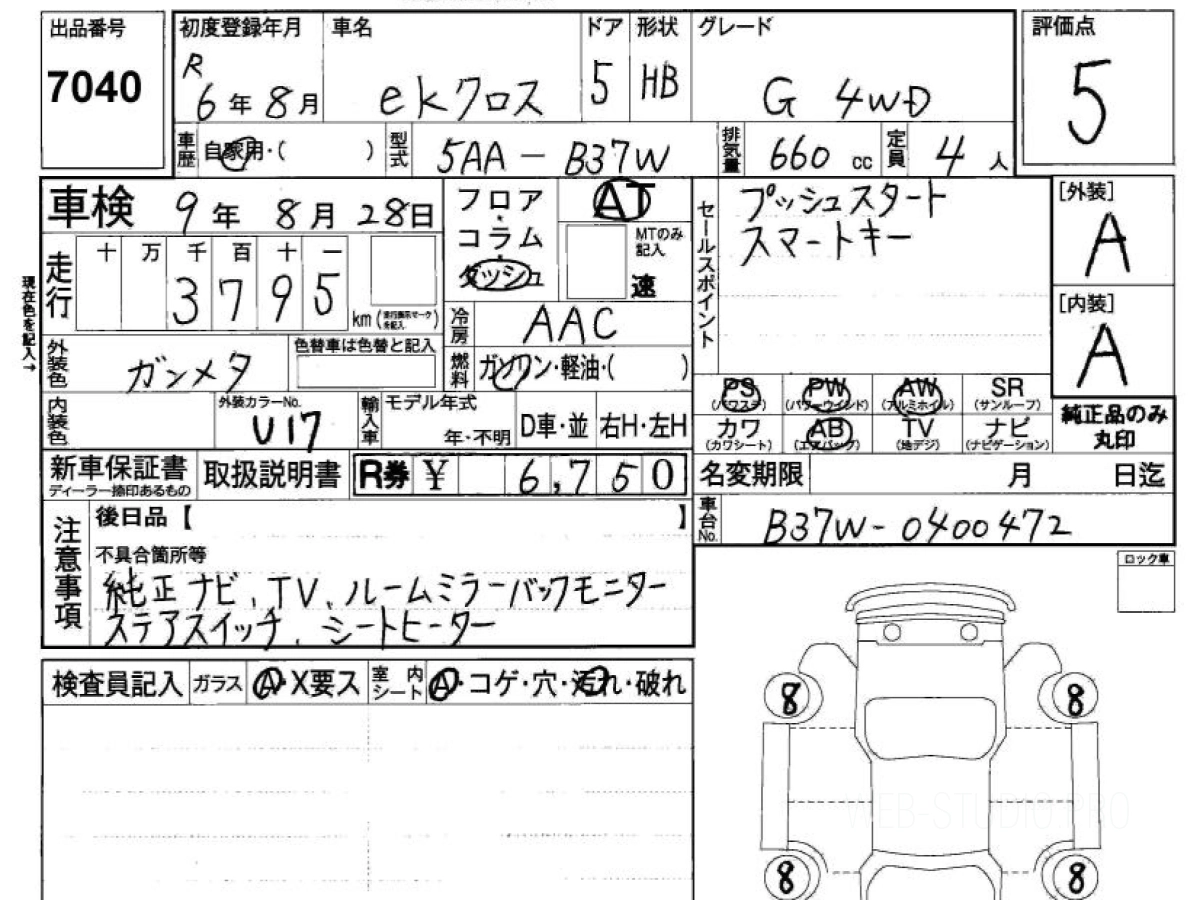 出品番号
7040
初度登録年月
R
6年8月
車名
ekクロス
ドア
5
形状
HB
グレード
G 4WD
評価点
5
車歴
自家用・( )
型式
5AA-B37W
排気量
660 cc
定員
4人
車検 9年 8月 28日
走行
十 万 千 百 十 一
3795
km(走行表示マークを記入)
現在色を記入→
フロア・コラム・ダッシュ
AT
MTのみ記入
速
冷房
AAC
燃料
ガソリン・軽油・( )
外装色
ガンメタ
色替車は色替と記入
内装色
外装カラーNo.
U17
輸入車
モデル年式
年・不明
D車・並
右H・左H
セールスポイント
プッシュスタート
スマートキー
[外装]
A
[内装]
A
PS
(パワステ)
PW
(パワーウインド)
AW
(アルミホイル)
SR
(サンルーフ)
カワ
(カワシート)
AB
(エアバック)
TV
(地デジ)
ナビ
(ナビゲーション)
純正品のみ
丸印
新車保証書
ディーラー捺印あるもの
取扱説明書
R券 ¥ 6,750
名変期限 月 日迄
車台No.
B37W-0400472
注意事項
後日品【 】
不具合箇所等
純正ナビ、TV、ルームミラーバックモニター
ステアスイッチ、シートヒーター
ロック車
検査員記入
ガラス
A・X要ス
室内シート
A・コゲ・穴・汚れ・破れ
8
8
WEB-STUDIO.PRO
8
8